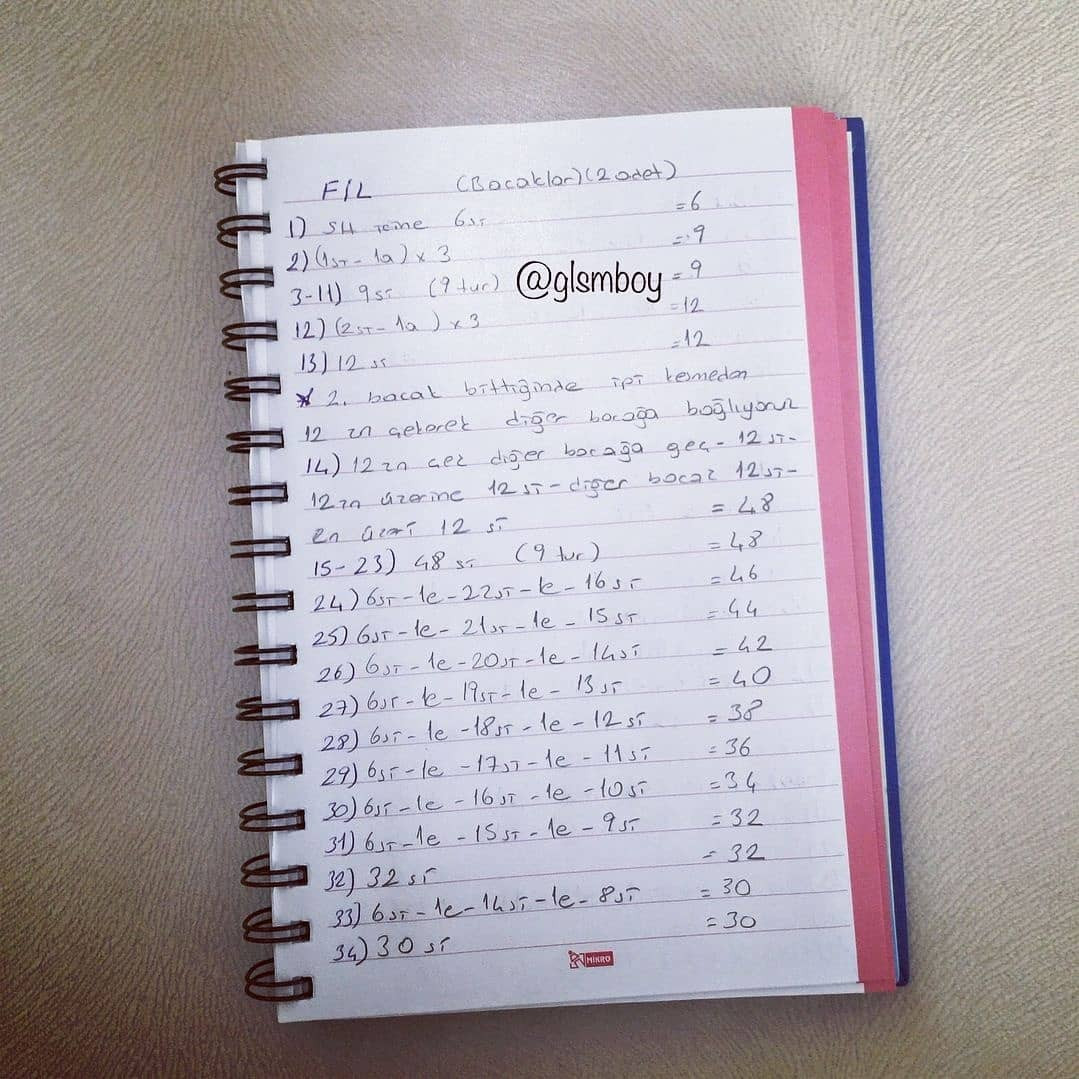 FİL (Bacaklar) (2 adet)
1) SH içine 6sı =6
2) (1sı - 1a) x 3 =9
3-11) 9sı (9 tur) =9
@glsmboy
12) (2sı - 1a) x3 =12
13) 12 sı =12
* 2. bacak bittiğinde ipi kesmeden
12 zn çekerek diğer bacağa bağlıyoruz
14) 12 zn çek diğer bacağa geç - 12 sı -
12 zn üzerine 12 sı - diğer bacak 12 sı -
zn üzeri 12 sı = 48
15-23) 48 sı (9 tur) =48
24) 6sı - 1e - 22sı - 1e - 16sı =46
25) 6sı - 1e - 21sı - 1e - 15sı =44
26) 6sı - 1e - 20sı - 1e - 14sı =42
27) 6sı - 1e - 19sı - 1e - 13sı =40
28) 6sı - 1e - 18sı - 1e - 12sı =38
29) 6sı - 1e - 17sı - 1e - 11sı =36
30) 6sı - 1e - 16sı - 1e - 10sı =34
31) 6sı - 1e - 15sı - 1e - 9sı =32
32) 32 sı =32
33) 6sı - 1e - 14sı - 1e - 8sı =30
34) 30 sı =30
MIKRO